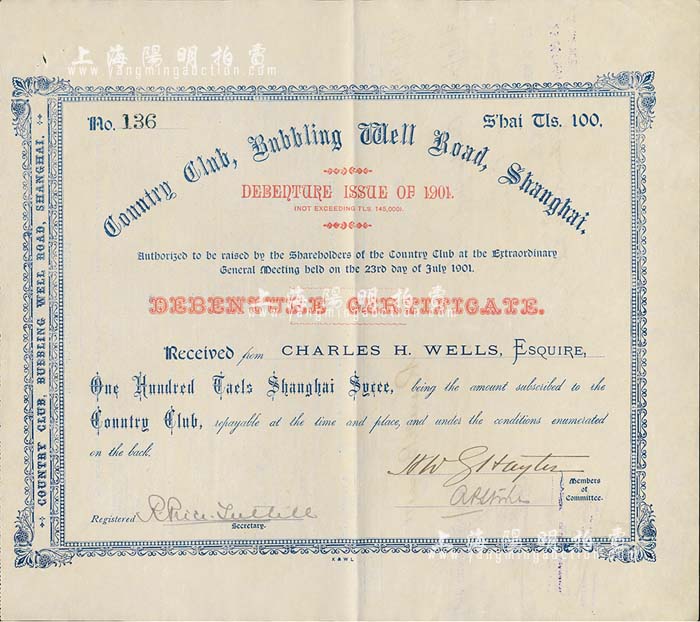 上海陽明拍賣
www.yangmingauction.com
No. 136
S'hai Tls. 100.
Country Club, Bubbling Well Road, Shanghai,
DEBENTURE ISSUE OF 1901.
(NOT EXCEEDING TLS. 145,000).
Authorized to be raised by the Shareholders of the Country Club at the Extraordinary
General Meeting held on the 23rd day of July 1901.
DEBENTURE CERTIFICATE.
上海陽明拍賣
www.yangmingauction.com
Received from CHARLES H. WELLS, ESQUIRE,
One Hundred Taels Shanghai Sycee, being the amount subscribed to the
Country Club, repayable at the time and place, and under the conditions enumerated
on the back.
Members
of
Committee.
Registered
Secretary.
上海陽明拍賣
www.yangmingauction.com
K & W L
COUNTRY CLUB, BUBBLING WELL ROAD, SHANGHAI.